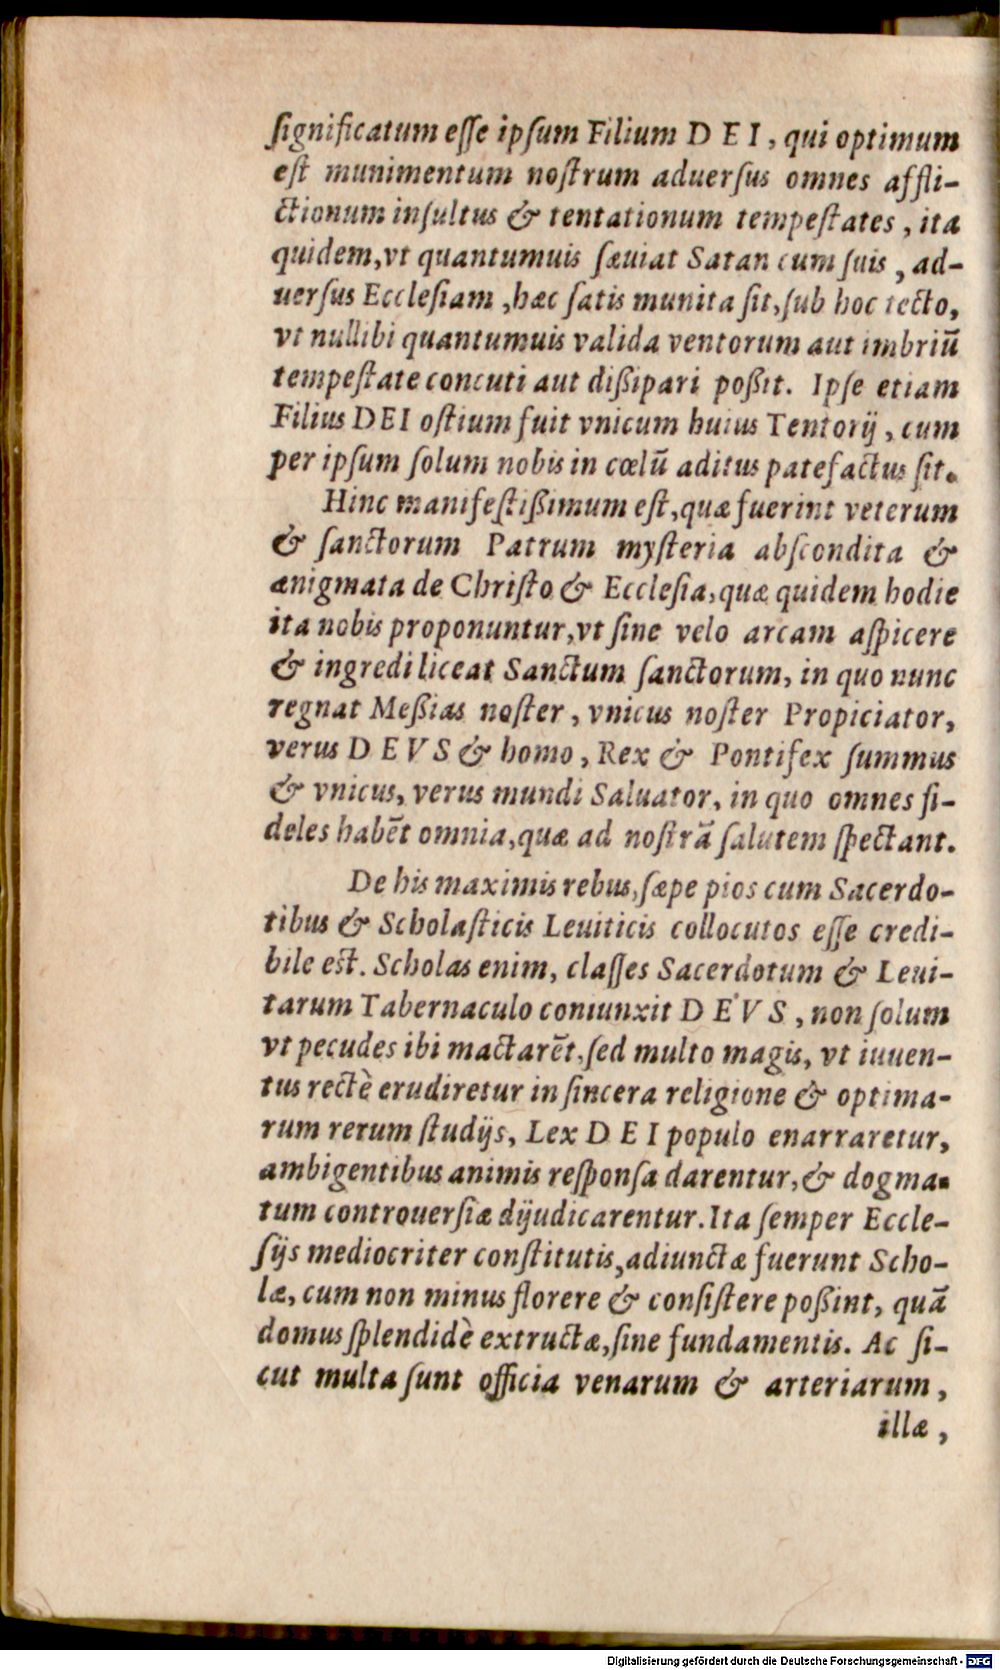 ſignificatum eſſe ipſum Filium D E I, qui optimum
eſt munimentum noſtrum aduerſus omnes affli-
ctionum inſultus & tentationum tempeſtates, ita
quidem, vt quantumuis ſæuiat Satan cum ſuis, ad-
uerſus Eccleſiam, hæc ſatis munita ſit, ſub hoc tecto,
vt nullibi quantumuis valida ventorum aut imbriū
tempeſtate concuti aut dißipari poßit. Ipſe etiam
Filius DEI oſtium fuit vnicum huius Tentorij, cum
per ipſum ſolum nobis in cœlū aditus patefactus ſit.
Hinc manifeſtißimum eſt, quæ fuerint veterum
& ſanctorum Patrum myſteria abſcondita &
ænigmata de Chriſto & Eccleſia, quæ quidem hodie
ita nobis proponuntur, vt ſine velo arcam aſpicere
& ingredi liceat Sanctum ſanctorum, in quo nunc
regnat Meßias noſter, vnicus noſter Propiciator,
verus D E V S & homo, Rex & Pontifex ſummus
& vnicus, verus mundi Saluator, in quo omnes fi-
deles habēt omnia, quæ ad noſtrā ſalutem ſpectant.
De his maximis rebus, ſæpe pios cum Sacerdo-
tibus & Scholaſticis Leuiticis collocutos eſſe credi-
bile eſt. Scholas enim, claſſes Sacerdotum & Leui-
tarum Tabernaculo coniunxit D E V S, non ſolum
vt pecudes ibi mactarēt, ſed multo magis, vt iuuen-
tus rectè erudiretur in ſincera religione & optima-
rum rerum ſtudijs, Lex D E I populo enarraretur,
ambigentibus animis reſponſa darentur, & dogma-
tum controuerſiæ dijudicarentur. Ita ſemper Eccle-
ſijs mediocriter conſtitutis, adiunctæ fuerunt Scho-
læ, cum non minus florere & conſiſtere poßint, quā
domus ſplendidè extructæ, ſine fundamentis. Ac ſi-
cut multa ſunt officia venarum & arteriarum,
illæ,
Digitalisierung gefördert durch die Deutsche Forschungsgemeinschaft - DFG